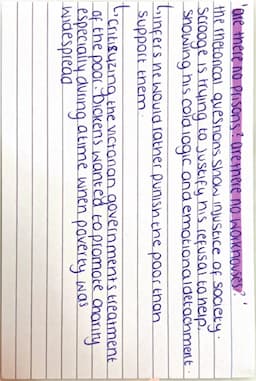 'are there no prisons? are there no workhouses?'
the rhetorical questions show injustice of society.
Scrooge is trying to justify his refusal to help,
showing his cold logic and emotional detachment.
↳ infers he would rather punish the poor than
support them.
↳ criticizing the victorian government's treatment
of the poor. Dickens wanted to promote charity
especially during a time when poverty was
widespread